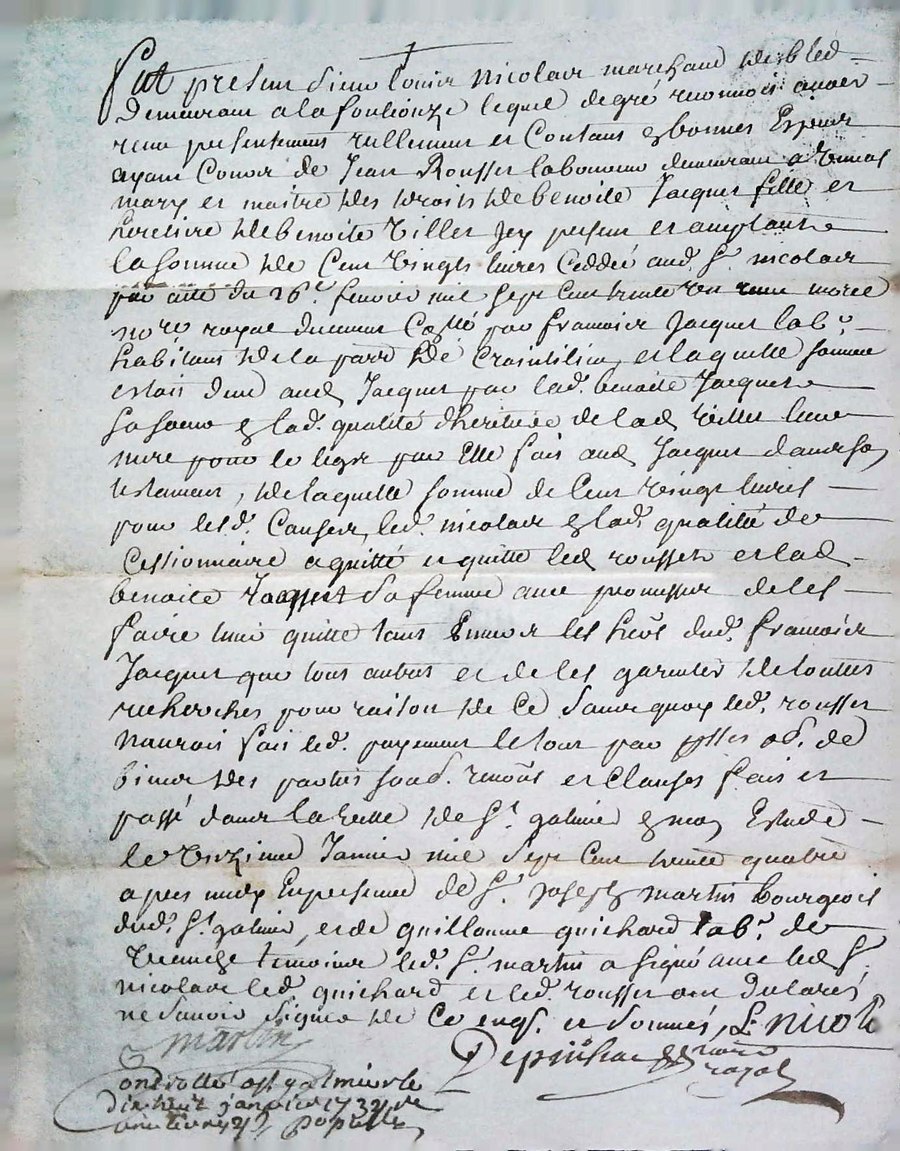 fut present Sieur Louis Nicolas marchand de bled
demeurant a la fouliouze lequel de gré reconnois avoir
receu presentement reellement et Contant en bonnes Especes
ayant Cours de Jean Rousset laboureur demeurant a
mary et maitre des droits de benoite Jacquet fille et
heretiere de benoite Villet icy present et acceptant
la somme de Cent vingt livres Ceddée aud. Sr. nicolas
par acte du 26e. fevrier mil sept Cent trente un receu morel
nore. royal duement Collé par francois Jacquet labr.
habitant de la parr. de Craintilieu, et laquelle somme
estoit deue aud. Jacquet par lad. benoite Jacquet
sa soeur en lad. qualité d'heritiere de lad. Villet leur
mere pour le legs par Elle fait aud. Jacquet dans son
testament, de laquelle somme de Cent vingt livres
pour lesd. Causes, led. nicolas en lad. qualité de
Cessionnaire a quitté et quitte led. rousset et lad.
benoite Jacquet sa femme avec promesse de les
faire tenir quitte tant Envers les heos dud. francois
Jacquet que tous autres et de les garentir de touttes
recherches pour raison de Ce Sans quoy led. rousset
nauroit fait led. payement le tout par
des parties soub. renons et Clauses fait et
passé dans la ville de St. galmier en mon Estude
le treizieme Janvier mil sept Cent trente quatre
apres midy En presence de Sr. Joseph martin bourgeois
dud. St. galmier, et de guillaume guichard labr. de
temoins led. Sr. martin a signé avec led. Sr.
nicolas led. guichard et led. rousset ont declarés
ne scavoir signer de Ce enqs. et sommés, L. nicolas
martin
nore
royal
Controllé a St galmier le
dix huit janvier 1734